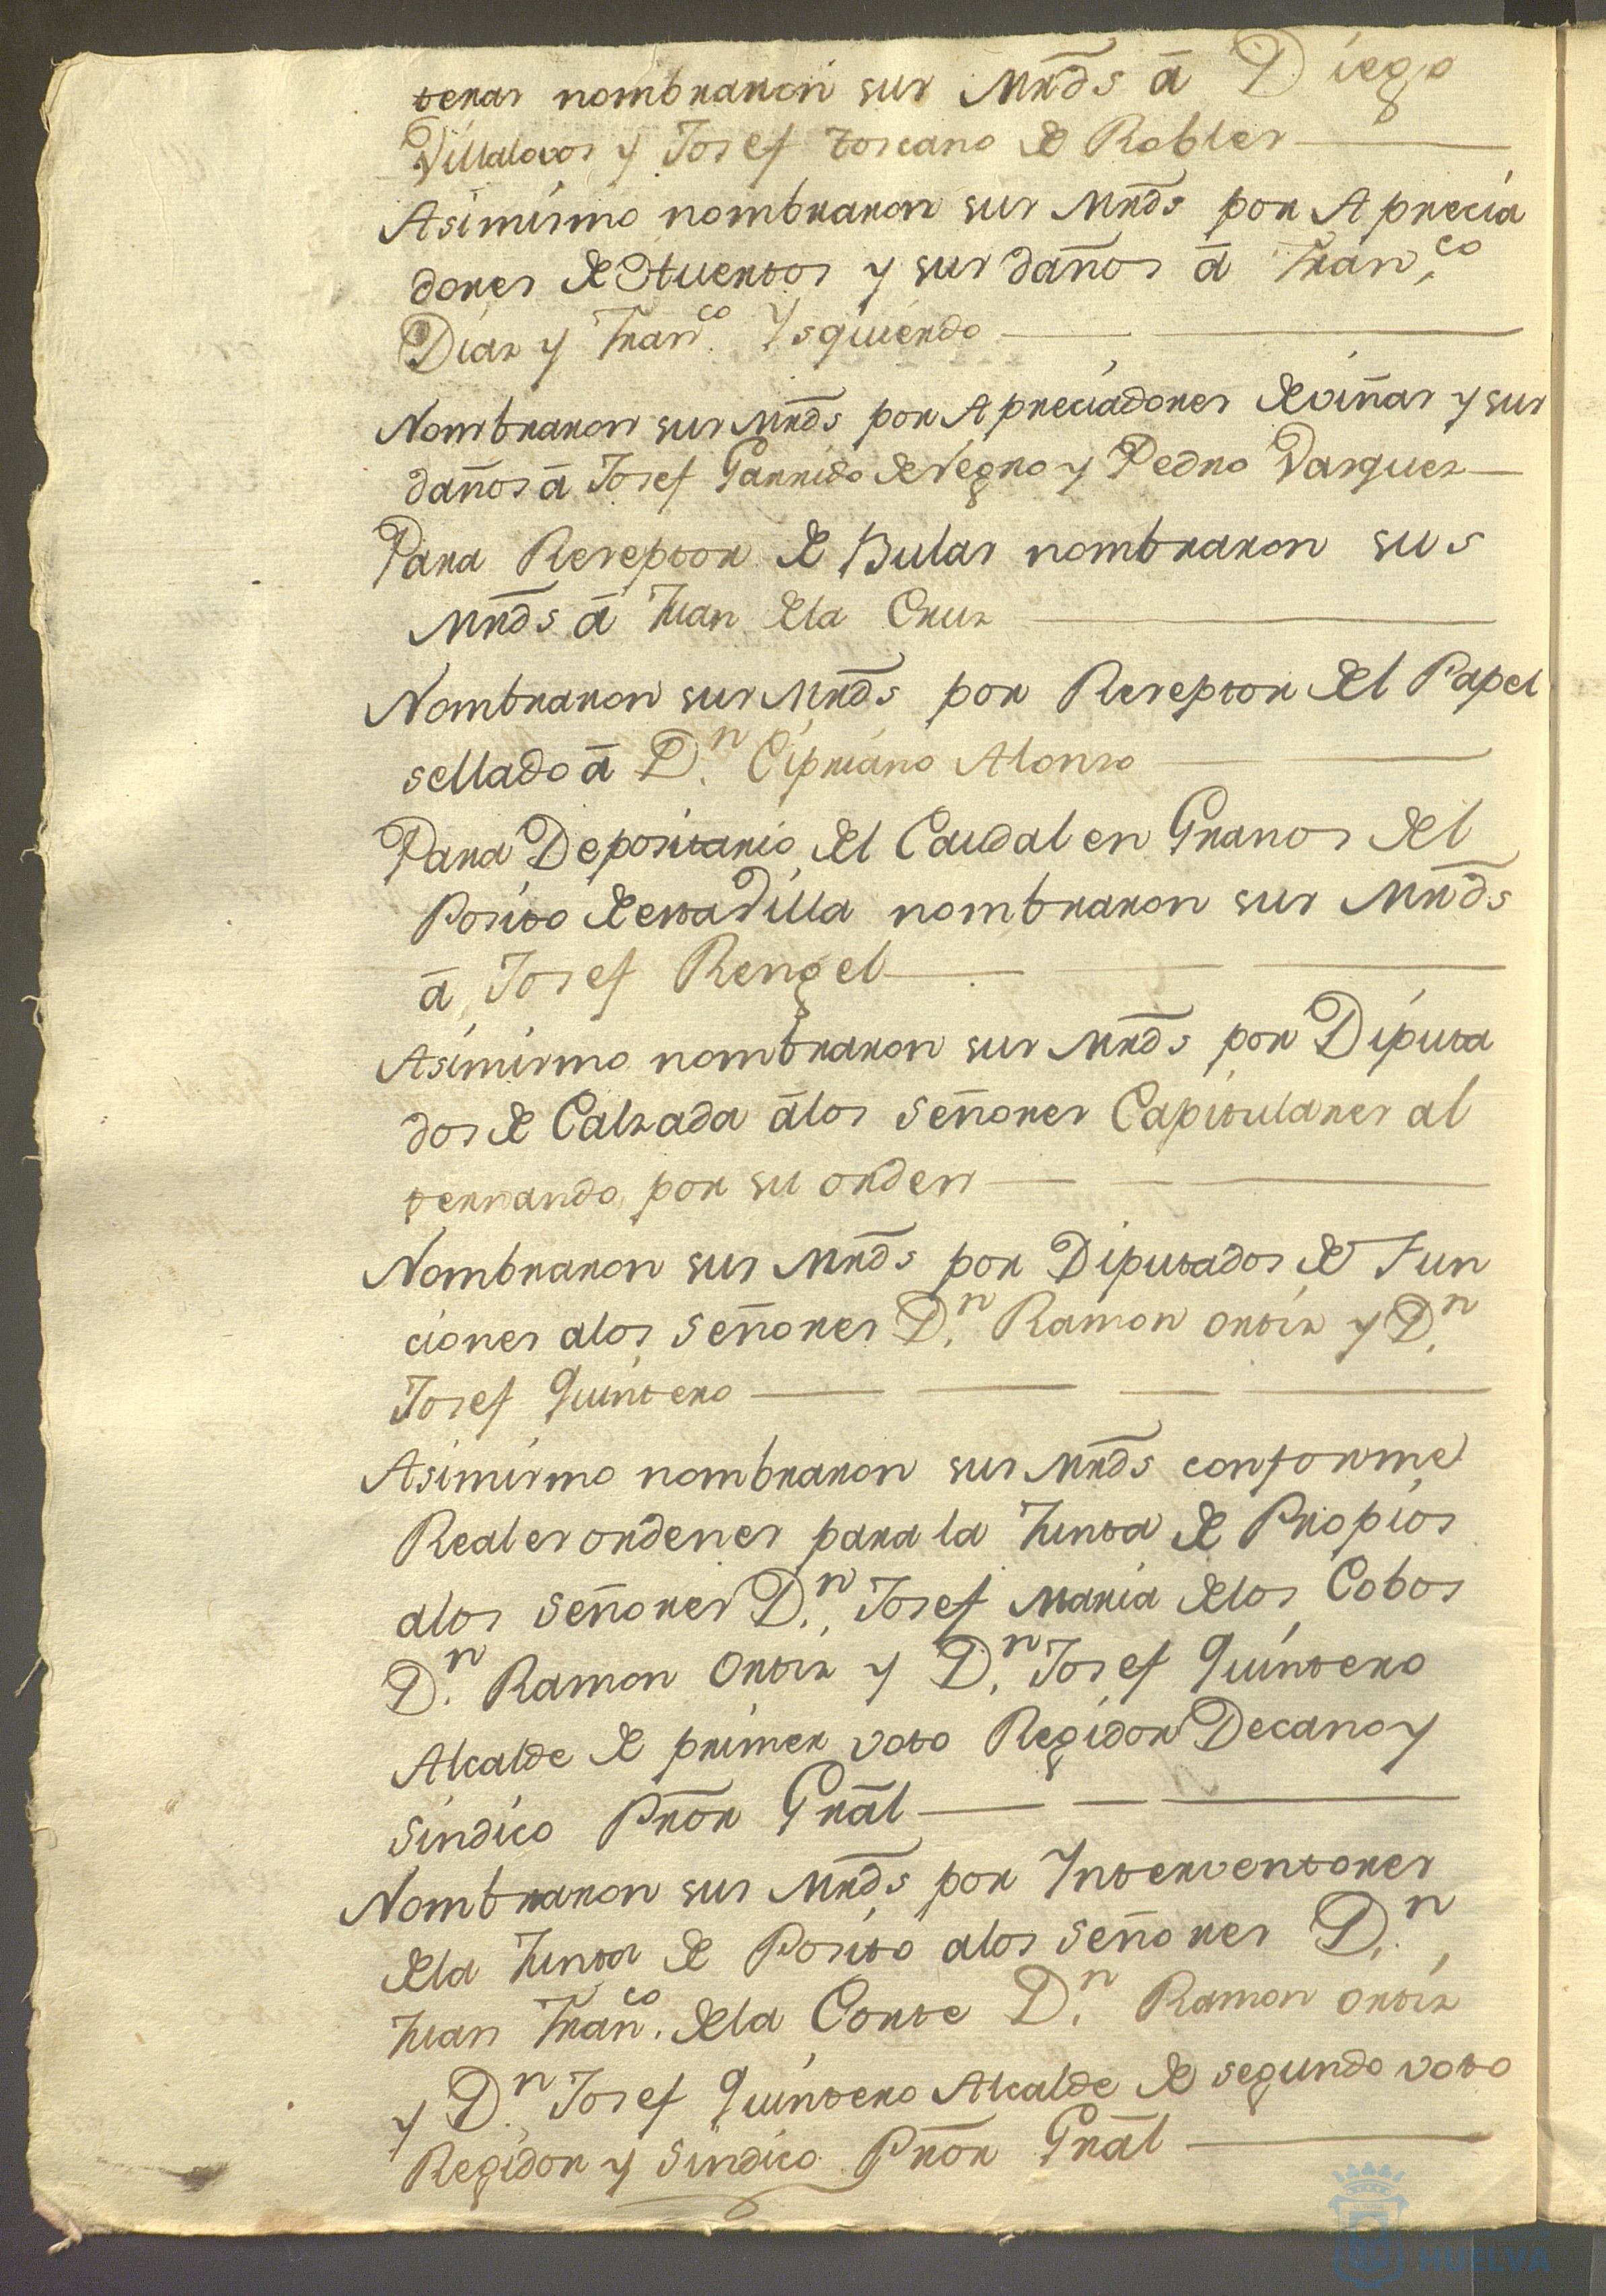 teras nombraron sus Mrds â Diego
Villalovos y Josef toscano de Robles
Asimismo nombraron sus Mrds por Aprecia
dores de Huertos y sus daños â Fran.co
Diaz y Fran.co Ysquierdo
Nombraron sus Mrds por Apreciadores de viñas y sus
daños â Josef Garrido de Negro y Pedro Vasquez
Para Reseptor de Bulas nombraron sus
Mrds â Juan de la Cruz
Nombraron sus Mrds por Reseptor del Papel
sellado â D.n Cipriano Alonso
Para Depositario del Caudal en Granos del
Posito de esta Villa nombraron sus Mrds
â Josef Rengel
Asimismo nombraron sus Mrds por Diputa
dos de Calzada â los señores Capitulares al
ternando por su orden
Nombraron sus Mrds por Diputados de Fun
ciones a los señores D.n Ramon Ortiz y D.n
Josef Quintero
Asimismo nombraron sus Mrds conforme
Reales ordenes para la Junta de Propios
a los señores D.n Josef Maria de los Cobos
D.n Ramon Ortiz y D.n Josef Quintero
Alcalde de primer voto Regidor Decano y
sindico Prōr Grāl
Nombraron sus Mrds por Interventores
de la Junta de Posito a los señores D.n
Juan Fran.co de la Corte D.n Ramon Ortiz
y D.n Josef Quintero Alcalde de segundo voto
Regidor y sindico Prōr Grāl
HUELVA